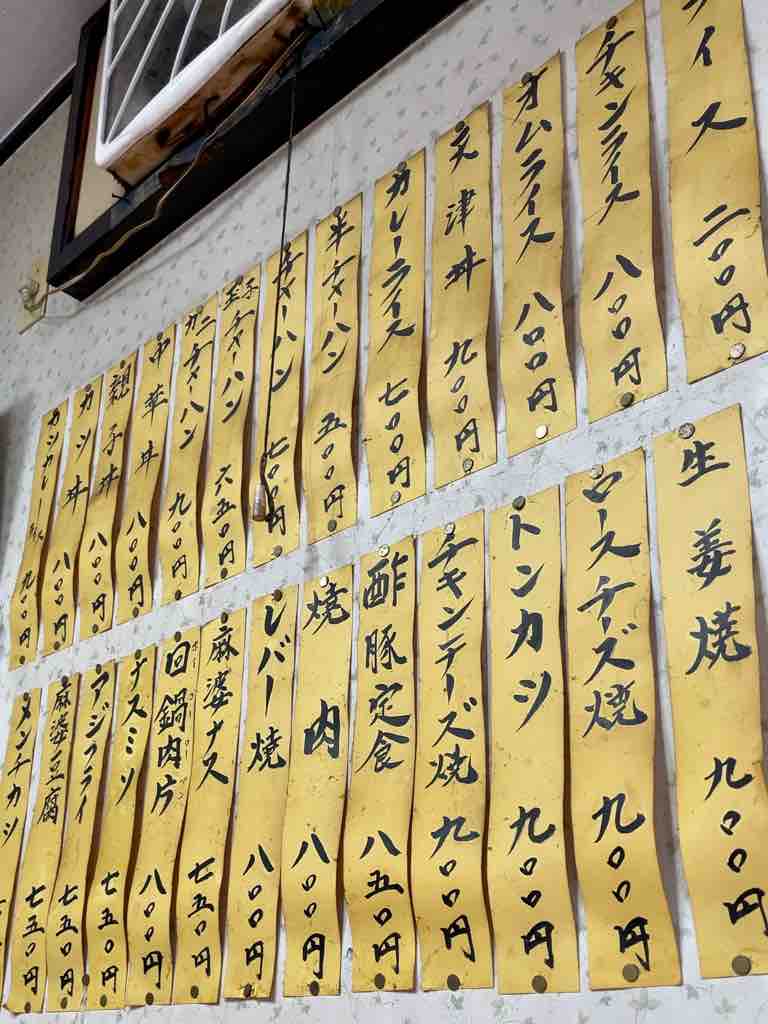 イス 二〇〇円
チキンライス 八〇〇円
オムライス 八〇〇円
天津丼 九〇〇円
カレーライス 七〇〇円
半チャーハン 五〇〇円
チャーハン 七〇〇円
玉子チャーハン 六五〇円
カニチャーハン 九〇〇円
中華丼 八〇〇円
親子丼 八〇〇円
カツ丼 八〇〇円
カツカレーライス 九〇〇円
生姜焼 九〇〇円
ロースチーズ焼 九〇〇円
トンカツ 九〇〇円
チキンチーズ焼 九〇〇円
酢豚定食 八五〇円
焼肉 八〇〇円
レバー焼 八〇〇円
麻婆ナス 七五〇円
回鍋肉片 八〇〇円
ナスミソ 七五〇円
アジフライ 七五〇円
麻婆豆腐 七五〇円
メンチカツ